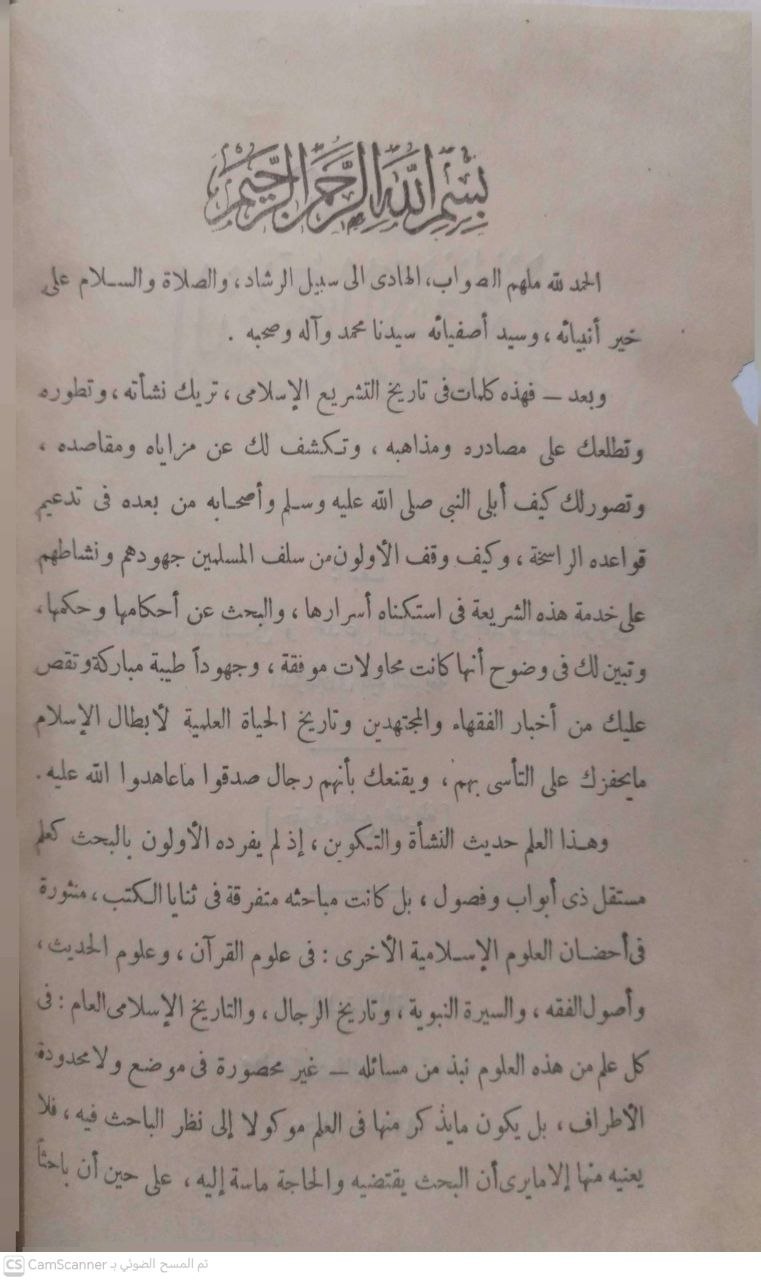 بسم الله الرحمن الرحيم
الحمد لله ملهم الصواب، الهادى الى سبيل الرشاد، والصلاة والسلام على
خير أنبيائه، وسيد أصفيائه سيدنا محمد وآله وصحبه .
وبعد — فهذه كلمات فى تاريخ التشريع الإسلامى، تريك نشأته، وتطوره
وتطلعك على مصادره ومذاهبه، وتكشف لك عن مزاياه ومقاصده،
وتصور لك كيف أبلى النبى صلى الله عليه وسلم وأصحابه من بعده فى تدعيم
قواعده الراسخة، وكيف وقف الأولون من سلف المسلمين جهودهم ونشاطهم
على خدمة هذه الشريعة فى استكناه أسرارها، والبحث عن أحكامها وحكمها،
وتبين لك فى وضوح أنها كانت محاولات موفقة، وجهوداً طيبة مباركة وتقص
عليك من أخبار الفقهاء والمجتهدين وتاريخ الحياة العلمية لأبطال الإسلام
مايحفزك على التأسى بهم، ويقنعك بأنهم رجال صدقوا ماعاهدوا الله عليه.
وهذا العلم حديث النشأة والتكوين، إذ لم يفرده الأولون بالبحث كعلم
مستقل ذى أبواب وفصول، بل كانت مباحثه متفرقة فى ثنايا الكتب، منثورة
فى أحضان العلوم الإسلامية الأخرى : فى علوم القرآن، وعلوم الحديث،
وأصول الفقه، والسيرة النبوية، وتاريخ الرجال، والتاريخ الإسلامى العام : فى
كل علم من هذه العلوم نبذ من مسائله — غير محصورة فى موضع ولا محدودة
الأطراف، بل يكون مايذكر منها فى العلم موكولا إلى نظر الباحث فيه، فلا
يعنيه منها إلا مايرى أن البحث يقتضيه والحاجة ماسة إليه، على حين أن باحثاً
CS CamScanner تم المسح الضوئي بـ